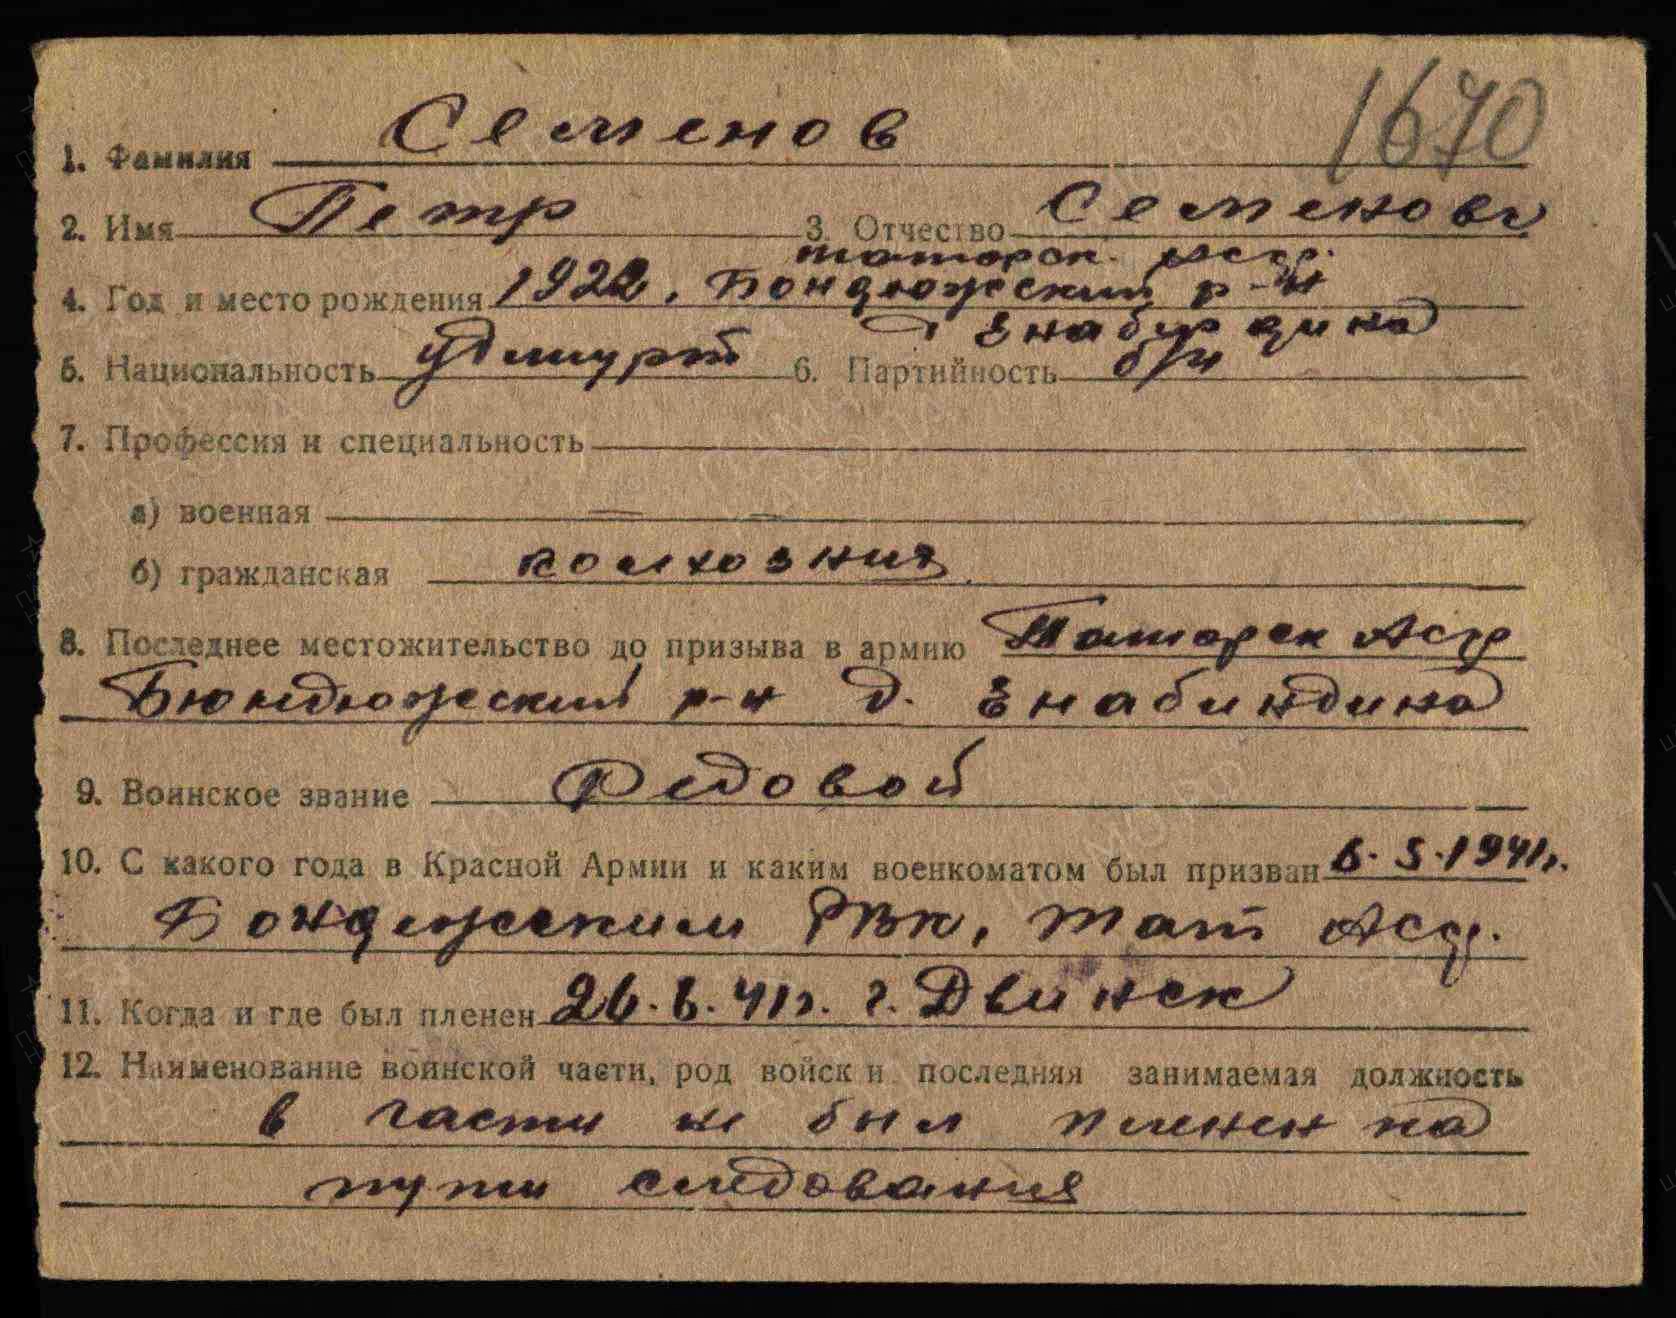 1670
1. Фамилия Семенов
2. Имя Петр 3. Отчество Семенович
4. Год и место рождения 1922, татарск. АССР. Бондюжский р-н
д Энабурдина
5. Национальность удмурт 6. Партийность б/п
7. Профессия и специальность
а) военная
б) гражданская колхозник
8. Последнее местожительство до призыва в армию Татарск АССР
Бюндюжеский р-н д. Энабиндина
9. Воинское звание Редовой
10. С какого года в Красной Армии и каким военкоматом был призван 6.5.1941г.
Бондюжским РВК, Тат АССР.
11. Когда и где был пленен 26.6.41г. г. Двинск
12. Наименование воинской части, род войск и последняя занимаемая должность
в части не был пленен на
пути следования